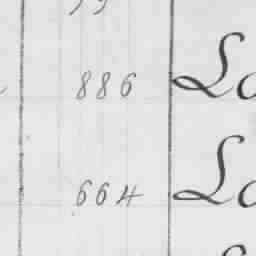 886 Lo
664 Lo